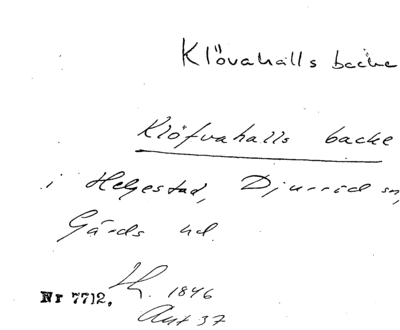 Klövahalls backe
Klöfvahalls backe
i Helgestad, Djurröd sn,
Gärds hd.
Nr 7712. 1846
Ant 37